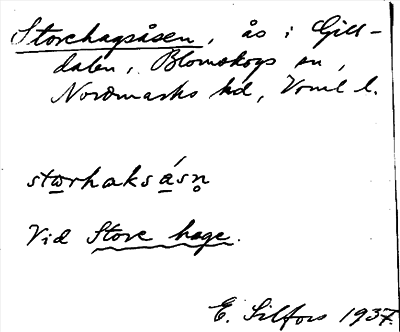 Storehagsåsen, ås i Gill-
dalen, Blomskogs sn,
Nordmarks hd, Vrml l.
stωrhaksåsn̥
Vid Store hage.
E. Silfors 1937.